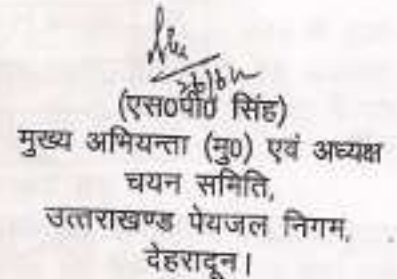 (एस0पी0 सिंह)
मुख्य अभियन्ता (मु0) एवं अध्यक्ष
चयन समिति,
उत्तराखण्ड पेयजल निगम,
देहरादून।